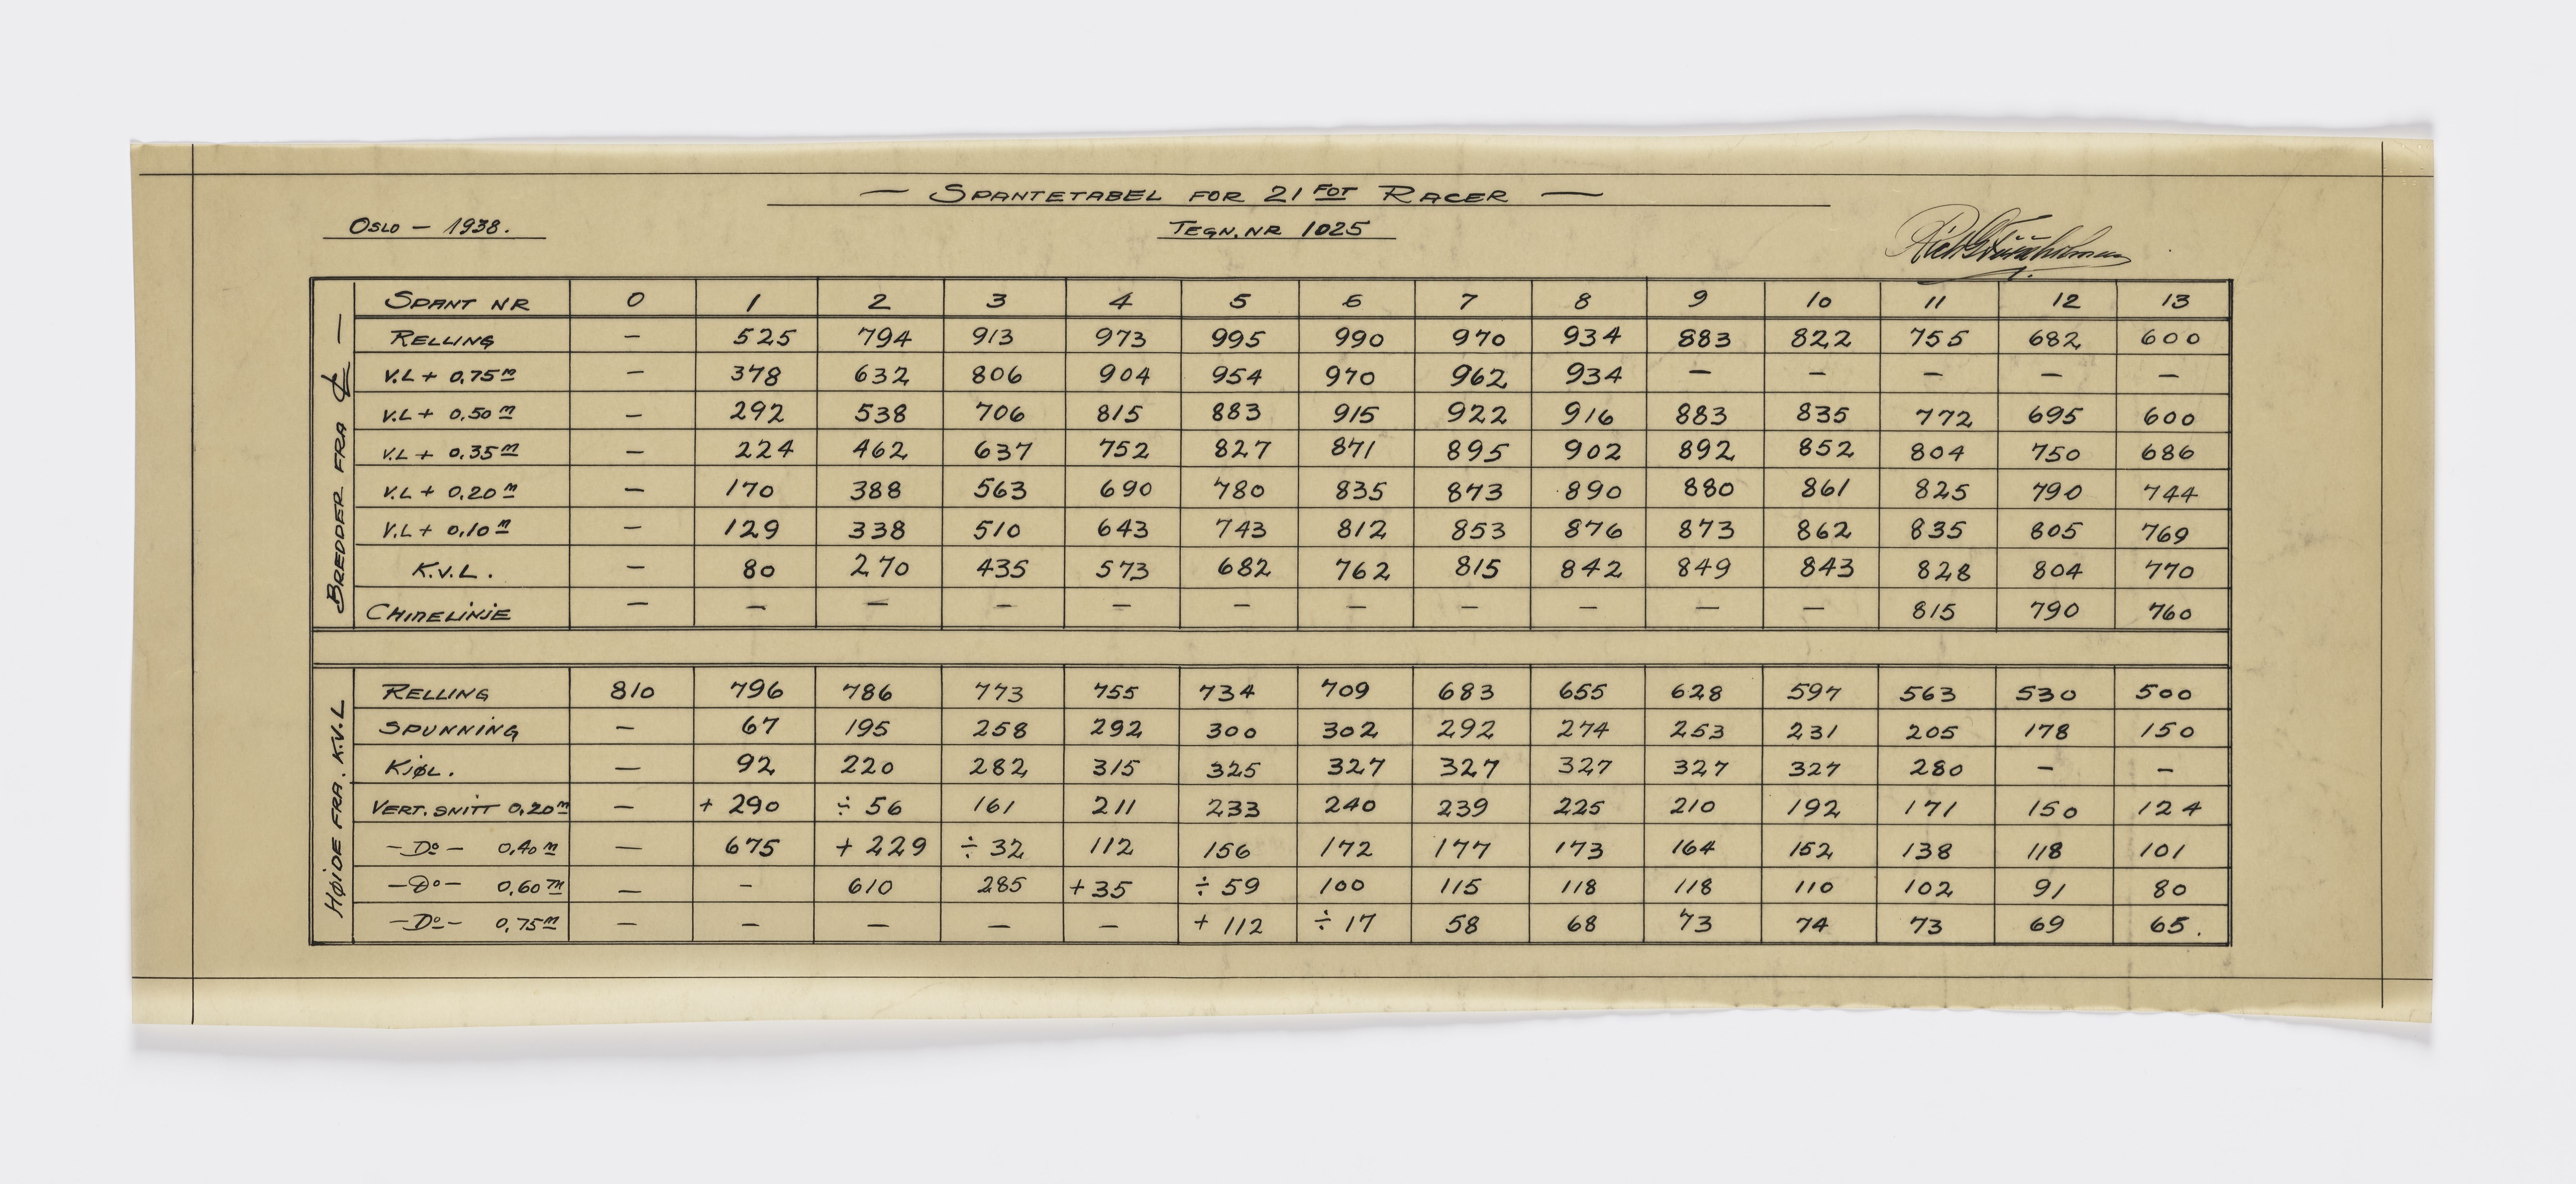 — SPANTETABEL FOR 21 FOT RACER —
OSLO – 1938.
TEGN. NR 1025
BREDDER FRA ℄ —
SPANT NR 0 1 2 3 4 5 6 7 8 9 10 11 12 13
RELLING – 525 794 913 973 995 990 970 934 883 822 755 682 600
V.L + 0,75 m – 378 632 806 904 954 970 962 934 – – – – –
V.L + 0,50 m – 292 538 706 815 883 915 922 916 883 835 772 695 600
V.L + 0,35 m – 224 462 637 752 827 871 895 902 892 852 804 750 686
V.L + 0,20 m – 170 388 563 690 780 835 873 890 880 861 825 790 744
V.L + 0,10 m – 129 338 510 643 743 812 853 876 873 862 835 805 769
K.V.L. – 80 270 435 573 682 762 815 842 849 843 828 804 770
CHINELINJE – – – – – – – – – – – 815 790 760
HØIDE FRA. K.V.L
RELLING 810 796 786 773 755 734 709 683 655 628 597 563 530 500
SPUNNING – 67 195 258 292 300 302 292 274 253 231 205 178 150
KJØL. – 92 220 282 315 325 327 327 327 327 327 280 – –
VERT. SNITT 0,20 m – + 290 ÷ 56 161 211 233 240 239 225 210 192 171 150 124
– Do – 0,40 m – 675 + 229 ÷ 32 112 156 172 177 173 164 152 138 118 101
– Do – 0,60 m – – 610 285 + 35 ÷ 59 100 115 118 118 110 102 91 80
– Do – 0,75 m – – – – – + 112 ÷ 17 58 68 73 74 73 69 65.